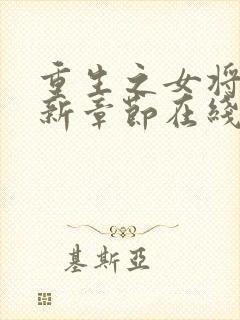 重生之女将
新章節在綫
基斯亞